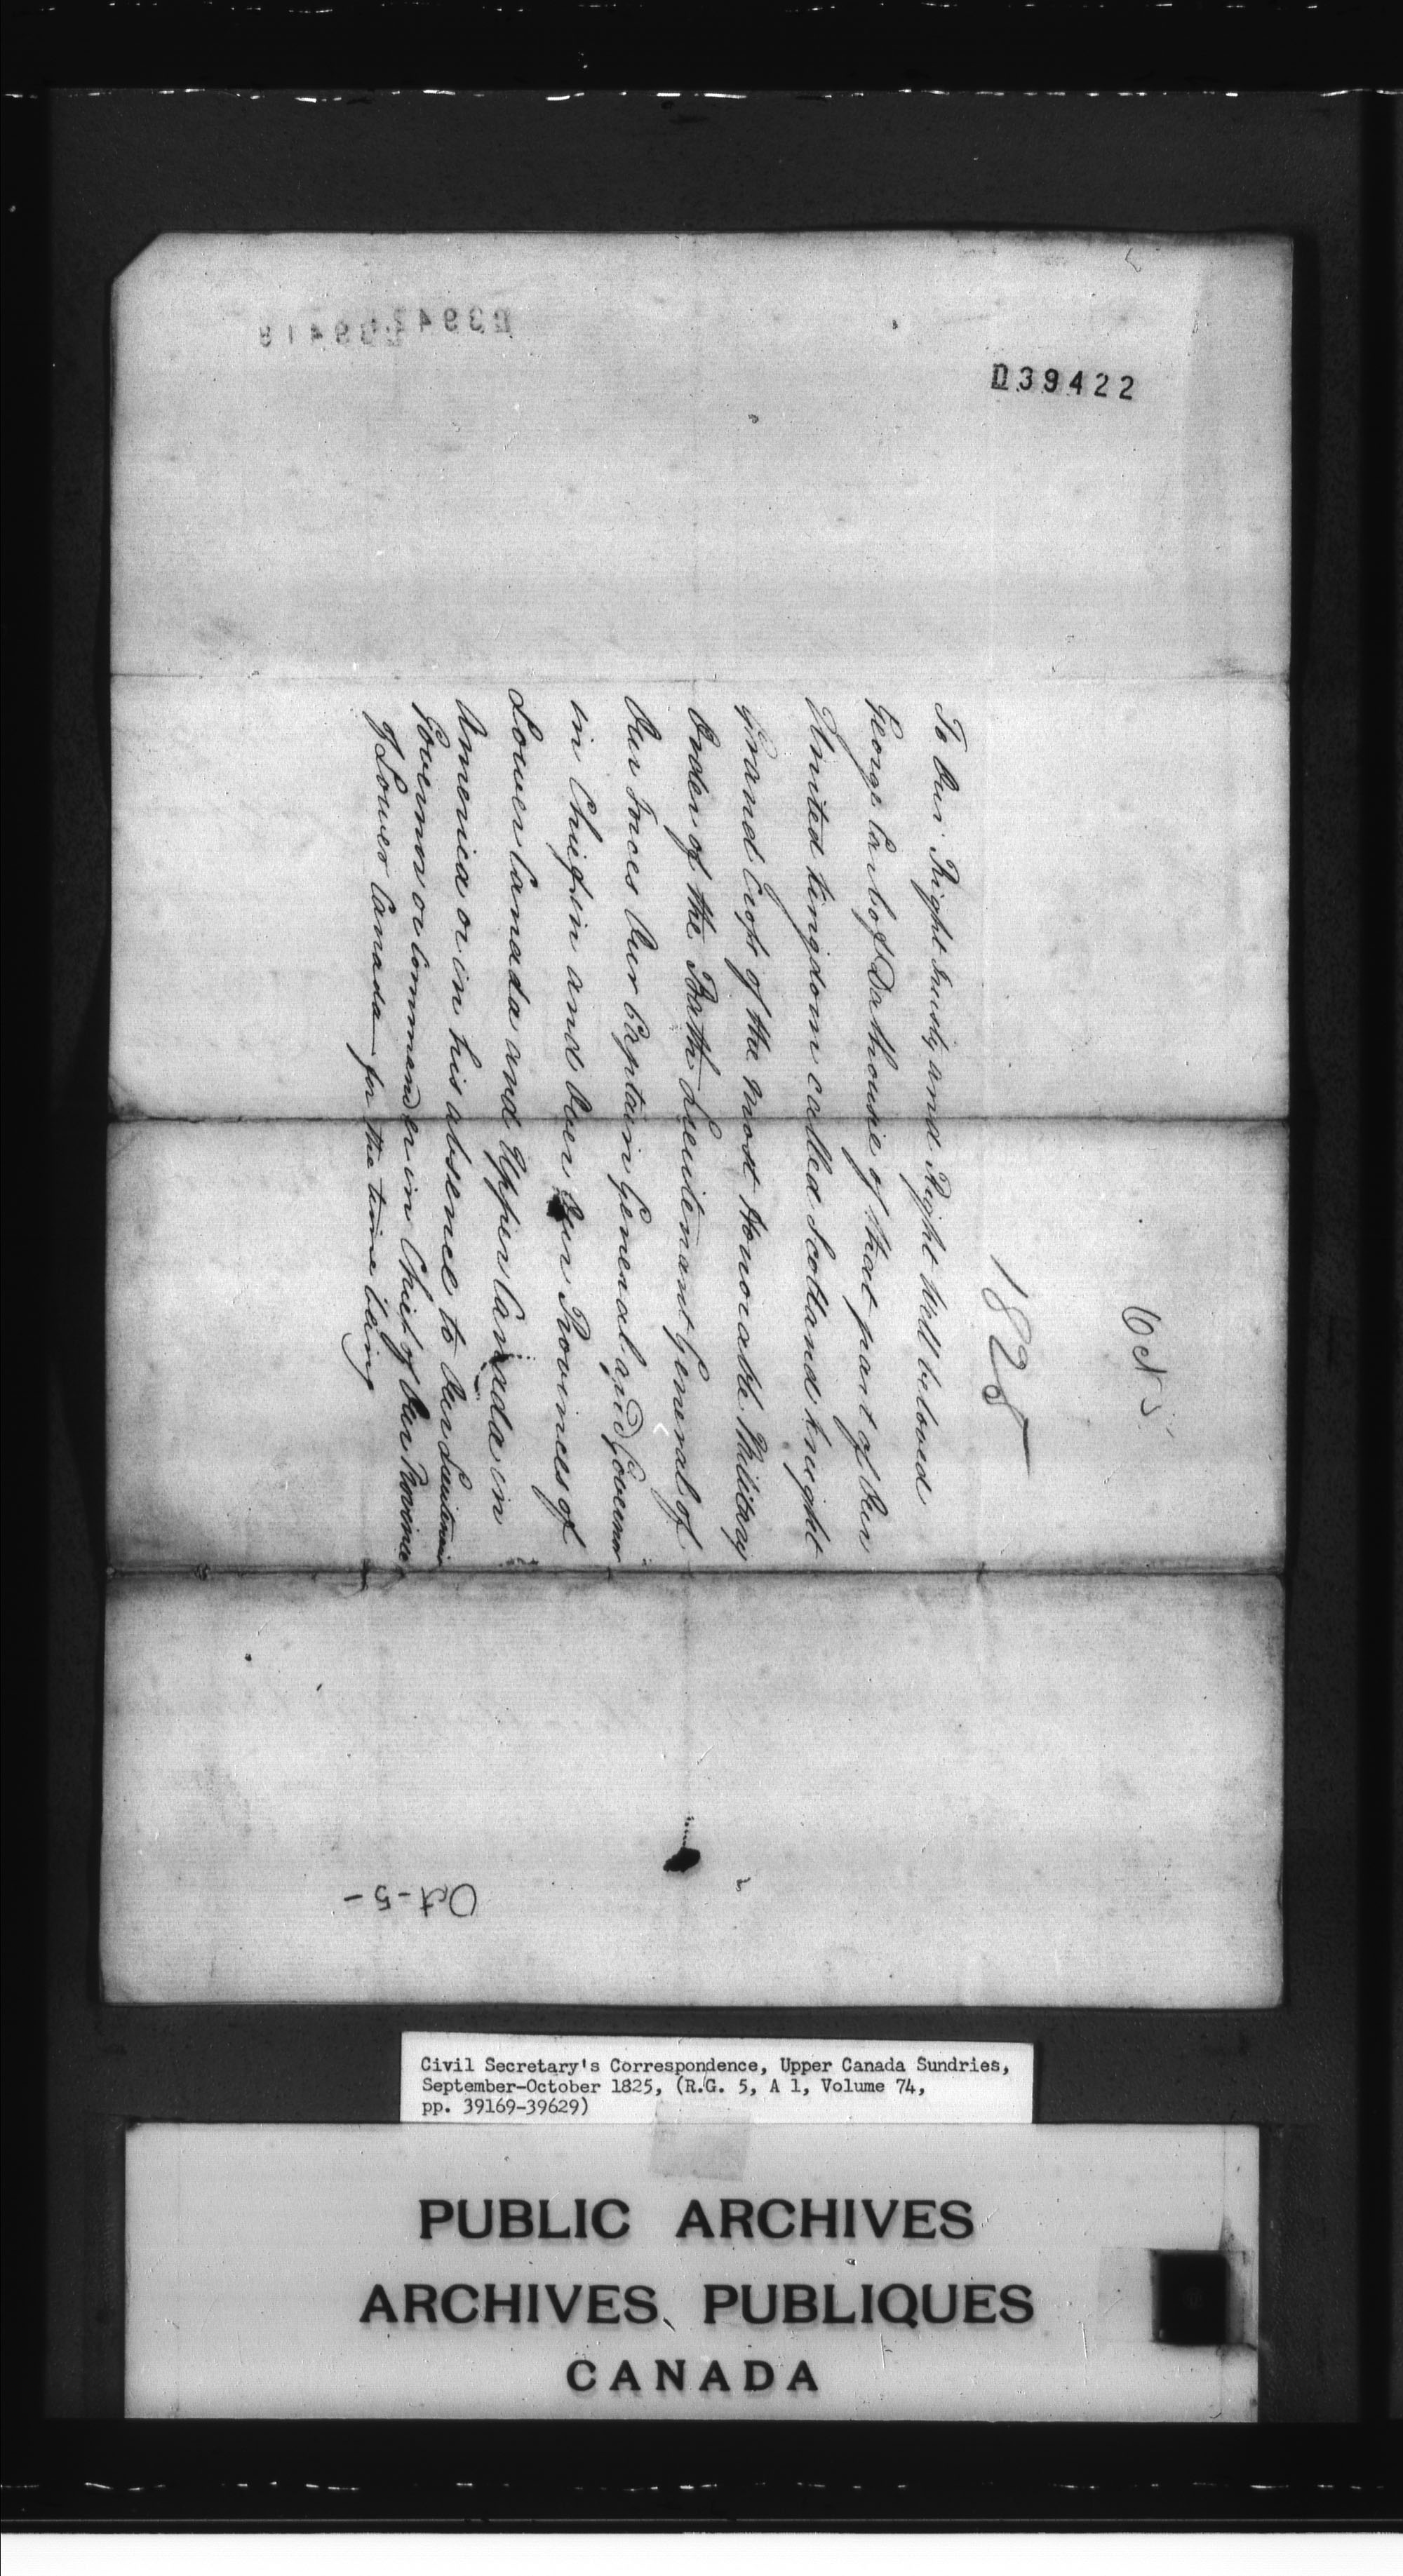 039422
Oct 5
1825
To Our Right Trusty and Right Well beloved
George Earl of Dalhousie of that part of Our
United Kingdom called Scotland Knight
Grand Cross of the most Honorable Military
Order of the Bath Lieutenant General of
Our Forces Our Captain General and Governor
in Chief in and Over Our Provinces of
Lower Canada and Upper Canada in
America or in his absence to Our Lieutenant
Governor or Commander in Chief of Our Province
of Lower Canada for the time being
Oct - 5 -
Civil Secretary's Correspondence, Upper Canada Sundries,
September-October 1825, (R.G. 5, A 1, Volume 74,
pp. 39169-39629)
PUBLIC ARCHIVES
ARCHIVES PUBLIQUES
CANADA